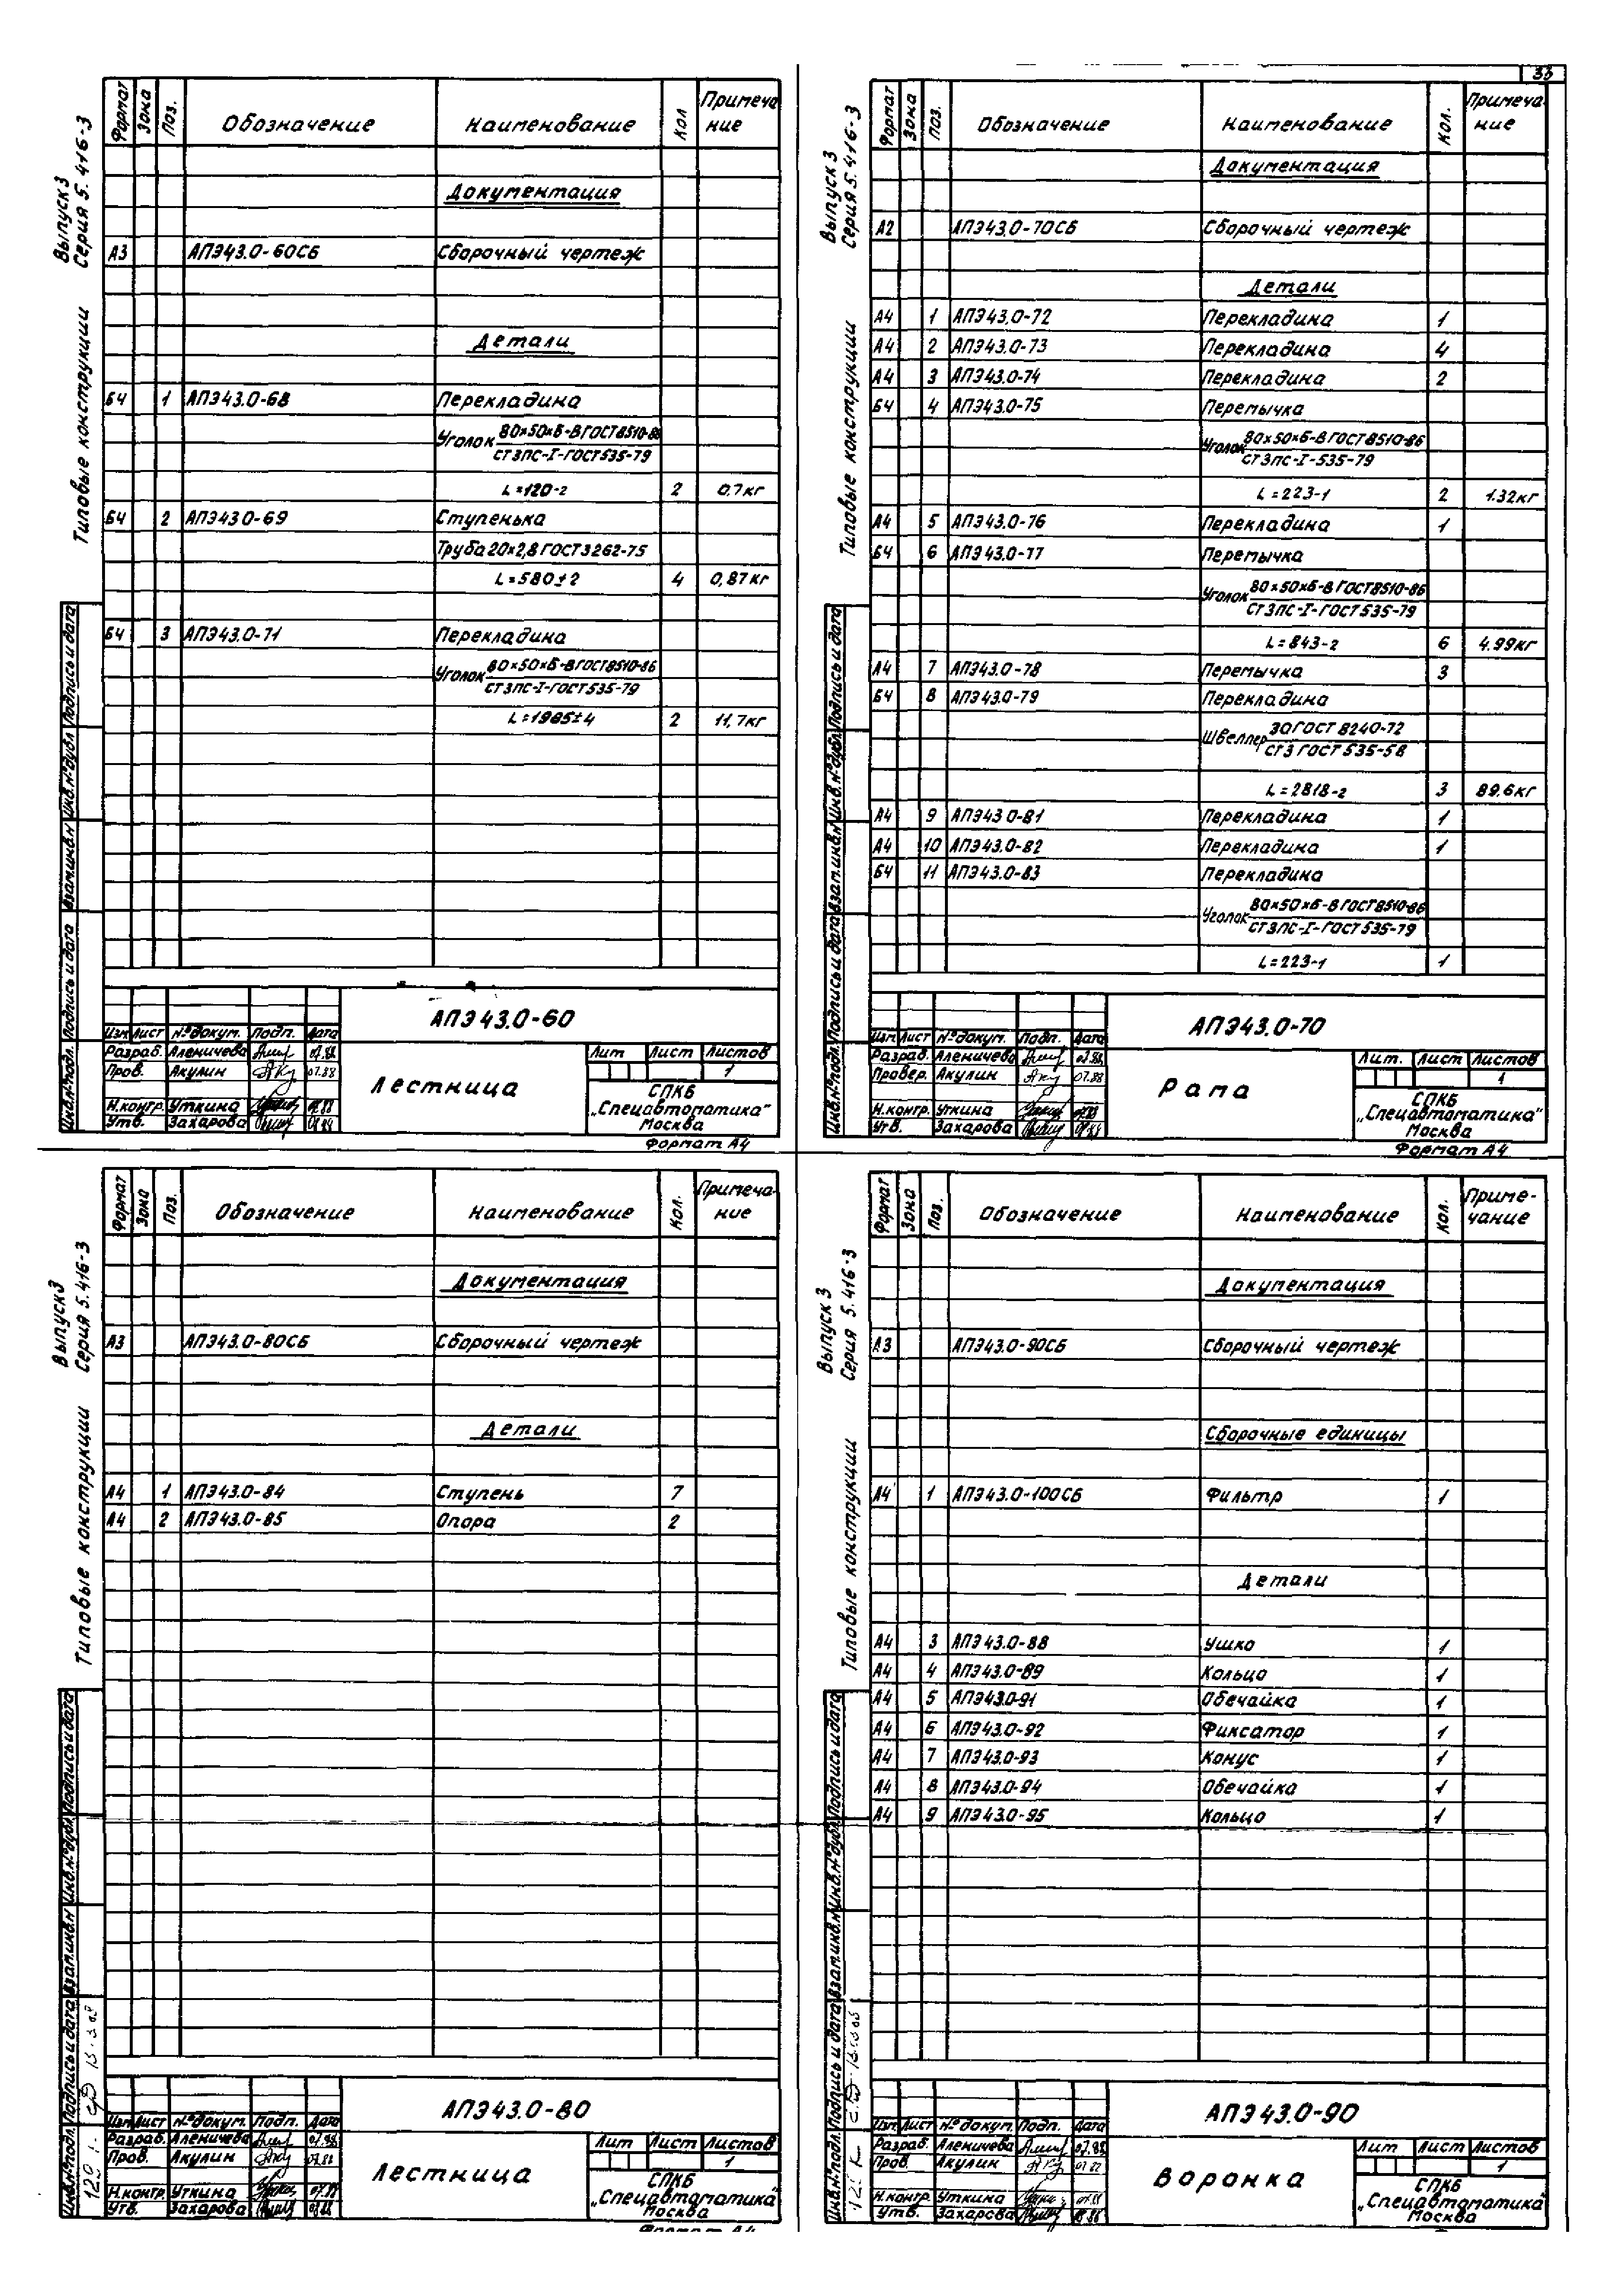 33
Выпуск 3
Серия 5.416-3
Типовые конструкции
Формат Зона Поз. Обозначение Наименование Кол Примечание
Документация
А3 АПЭ43.0-60СБ Сборочный чертеж
Детали
БЧ 1 АПЭ43.0-68 Перекладина
Уголок 80×50×6-В ГОСТ 8510-86
СТ3ПС-I-ГОСТ 535-79
L=120-2 2 0.7кг
БЧ 2 АПЭ43 0-69 Ступенька
Труба 20×2,8 ГОСТ 3262-75
L=580±2 4 0,87кг
БЧ 3 АПЭ43.0-71 Перекладина
Уголок 80×50×6-В ГОСТ 8510-86
СТ3ПС-I-ГОСТ 535-79
L=1985±4 2 11,7кг
Инв.№подл. Подпись и дата Взам.инв.№ Инв.№дубл Подпись и дата
АПЭ43.0-60
Изм Лист №докум. Подп. Дата
Разраб. Аленичева 07.88
Пров. Акулин 07.88
Н.контр. Уткина 07.88
Утв. Захарова
Лестница
Лит Лист Листов
1
СПКБ
„Спецавтоматика"
Москва
Формат А4
Выпуск 3
Серия 5.416-3
Типовые конструкции
Формат Зона Поз. Обозначение Наименование Кол. Примечание
Документация
А2 АПЭ43.0-70СБ Сборочный чертеж
Детали
А4 1 АПЭ43.0-72 Перекладина 1
А4 2 АПЭ43.0-73 Перекладина 4
А4 3 АПЭ43.0-74 Перекладина 2
БЧ 4 АПЭ43.0-75 Перемычка
Уголок 80×50×6-В ГОСТ 8510-86
СТ3ПС-I-535-79
L=223-1 2 1.32кг
А4 5 АПЭ43.0-76 Перекладина 1
БЧ 6 АПЭ43.0-77 Перемычка
Уголок 80×50×6-В ГОСТ 8510-86
СТ3ПС-I-ГОСТ 535-79
L=843-2 6 4.99кг
А4 7 АПЭ43.0-78 Перемычка 3
БЧ 8 АПЭ43.0-79 Перекладина
Швеллер 30 ГОСТ 8240-72
СТ3 ГОСТ 535-58
L=2818-2 3 89.6кг
А4 9 АПЭ43 0-81 Перекладина 1
А4 10 АПЭ43.0-82 Перекладина 1
БЧ 11 АПЭ43.0-83 Перекладина
Уголок 80×50×6-В ГОСТ 8510-86
СТ3ПС-I-ГОСТ 535-79
L=223-1 1
Инв.№подл. Подпись и дата Взам.инв.№ Инв.№дубл Подпись и дата
АПЭ43.0-70
Изм Лист №докум. Подп. Дата
Разраб. Аленичева 07.88
Провер. Акулин 07.88
Н.контр. Уткина 07.88
Утв. Захарова
Рама
Лит. Лист Листов
1
СПКБ
„Спецавтоматика"
Москва
Формат А4
Выпуск 3
Серия 5.416-3
Типовые конструкции
Формат Зона Поз. Обозначение Наименование Кол. Примечание
Документация
А3 АПЭ43.0-80СБ Сборочный чертеж
Детали
А4 1 АПЭ43.0-84 Ступень 7
А4 2 АПЭ43.0-85 Опора 2
Инв.№подл. Подпись и дата Взам.инв.№ Инв.№дубл Подпись и дата
АПЭ43.0-80
Изм Лист №докум. Подп. Дата
Разраб. Аленичева 07.88
Пров. Акулин 07.88
Н.контр. Уткина 07.88
Утв. Захарова
Лестница
Лит Лист Листов
1
СПКБ
„Спецавтоматика"
Москва
Формат А4
Выпуск 3
Серия 5.416-3
Типовые конструкции
Формат Зона Поз. Обозначение Наименование Кол. Примечание
Документация
А3 АПЭ43.0-90СБ Сборочный чертеж
Сборочные единицы
А4 1 АПЭ43.0-100СБ Фильтр 1
Детали
А4 3 АПЭ43.0-88 Ушко 1
А4 4 АПЭ43.0-89 Кольцо 1
А4 5 АПЭ43.0-91 Обечайка 1
А4 6 АПЭ43.0-92 Фиксатор 1
А4 7 АПЭ43.0-93 Конус 1
А4 8 АПЭ43.0-94 Обечайка 1
А4 9 АПЭ43.0-95 Кольцо 1
Инв.№подл. Подпись и дата Взам.инв.№ Инв.№дубл Подпись и дата
АПЭ43.0-90
Изм Лист №докум. Подп. Дата
Разраб. Аленичева 07.88
Пров. Акулин
Н.контр. Уткина
Утв. Захарова
Воронка
Лит Лист Листов
1
СПКБ
„Спецавтоматика"
Москва